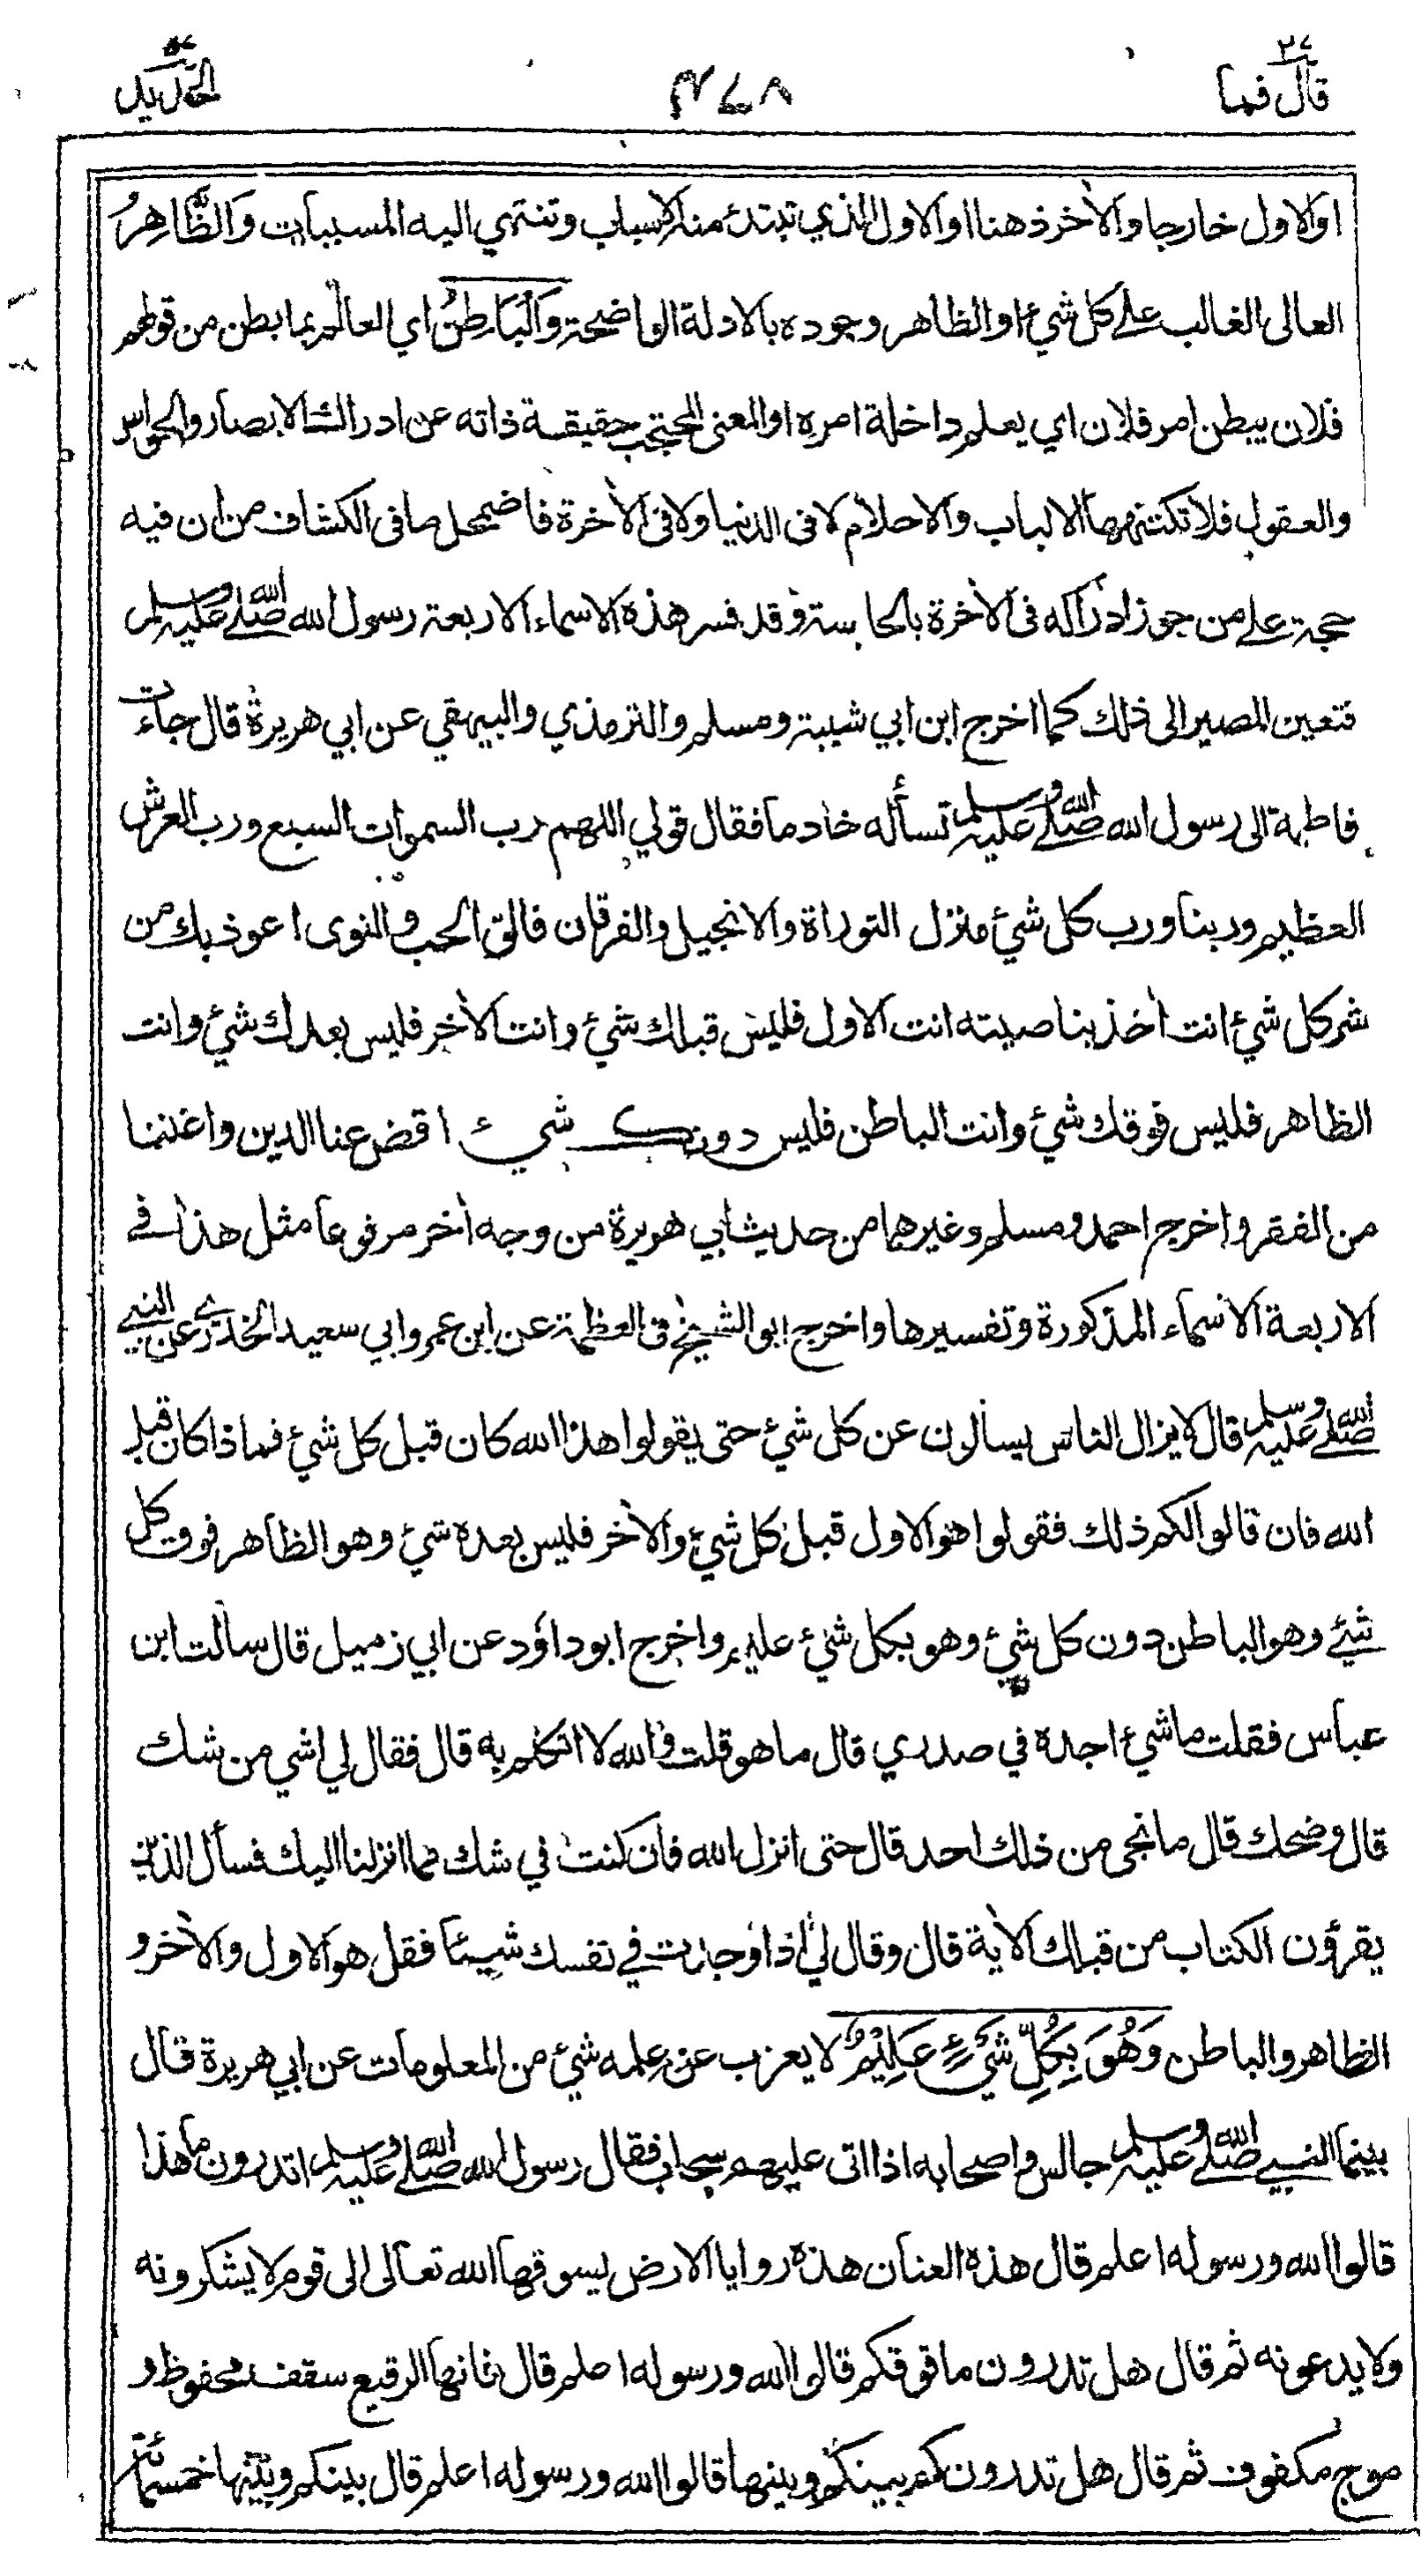 قال فما ٢٧
٣٧٨
الحديد ٥٧
او الاول خارجا والأخر ذهنا او الاول الذي تبتدئ منه الاسباب وتنتهي اليه المسببات وَالظَّاهِرُ
العالى الغالب على كل شيء او الظاهر وجوده بالادلة الواضحة وَالْبَاطِنُ اي العالم بما بطن من قولهم
فلان يبطن امر فلان اي يعلم داخلة امره او المعنى المحتجب حقيقة ذاته عن ادراك الابصار والحواس
والعقول فلا تكتنهها الالباب والاحلام لا فى الدنيا ولا فى الأخرة فاضمحل ما فى الكشاف من ان فيه
حجة على من جوز ادراكه فى الأخرة بالحاسة وقد فسر هذه الاسماء الاربعة رسول الله صلى الله عليه وسلم
فتعين المصير الى ذلك كما اخرج ابن ابي شيبة ومسلم والترمذي والبيهقي عن ابي هريرة قال جاءت
فاطمة الى رسول الله صلى الله عليه وسلم تسأله خادما فقال قولي اللهم رب السموات السبع ورب العرش
العظيم وربنا ورب كل شيء منزل التوراة والانجيل والفرقان فالق الحب والنوى اعوذ بك من
شر كل شيء انت أخذ بناصيته انت الاول فليس قبلك شيء وانت الأخر فليس بعدك شيء وانت
الظاهر فليس فوقك شيء وانت الباطن فليس دونك شيء اقض عنا الدين واغننا
من الفقر واخرج احمد ومسلم وغيرهما من حديث ابي هريرة من وجه أخر مرفوعا مثل هذا في
الاربعة الاسماء المذكورة وتفسيرها واخرج ابو الشيخ فى العظمة عن ابن عمر وابي سعيد الخدري عن النبي
صلى الله عليه وسلم قال لا يزال الناس يسألون عن كل شيء حتى يقولوا هذا الله كان قبل كل شيء فماذا كان قبل
الله فان قالوا لكم ذلك فقولوا هو الاول قبل كل شيء والأخر فليس بعده شيء وهو الظاهر فوق كل
شيء وهو الباطن دون كل شيء وهو بكل شيء عليم واخرج ابو داؤد عن ابي زميل قال سألت ابن
عباس فقلت ما شيء اجده في صدري قال ما هو قلت والله لا اتكلم به قال فقال لي اشي من شك
قال وضحك قال ما نجى من ذلك احد قال حتى انزل الله فان كنت في شك مما انزلنا اليك فسأل الذين
يقرؤن الكتاب من قبلك الأية قال وقال لي اذا وجدت في نفسك شيئا فقل هو الاول والأخر و
الظاهر والباطن وَهُوَ بِكُلِّ شَيْءٍ عَلِيْمٌ لا يعزب عن علمه شيء من المعلومات عن ابي هريرة قال
بينما النبي صلى الله عليه وسلم جالس واصحابه اذا اتى عليهم سحاب فقال رسول الله صلى الله عليه وسلم اتدرون ما هذا
قالوا الله ورسوله اعلم قال هذه العنان هذه روايا الارض يسوقها الله تعالى الى قوم لا يشكرونه
ولا يدعونه ثم قال هل تدرون ما فوقكم قالوا الله ورسوله اعلم قال فانها الرقيع سقف محفوظ و
موج مكفوف ثم قال هل تدرون كم بينكم وبينها قالوا الله ورسوله اعلم قال بينكم وبينها خمسمائة